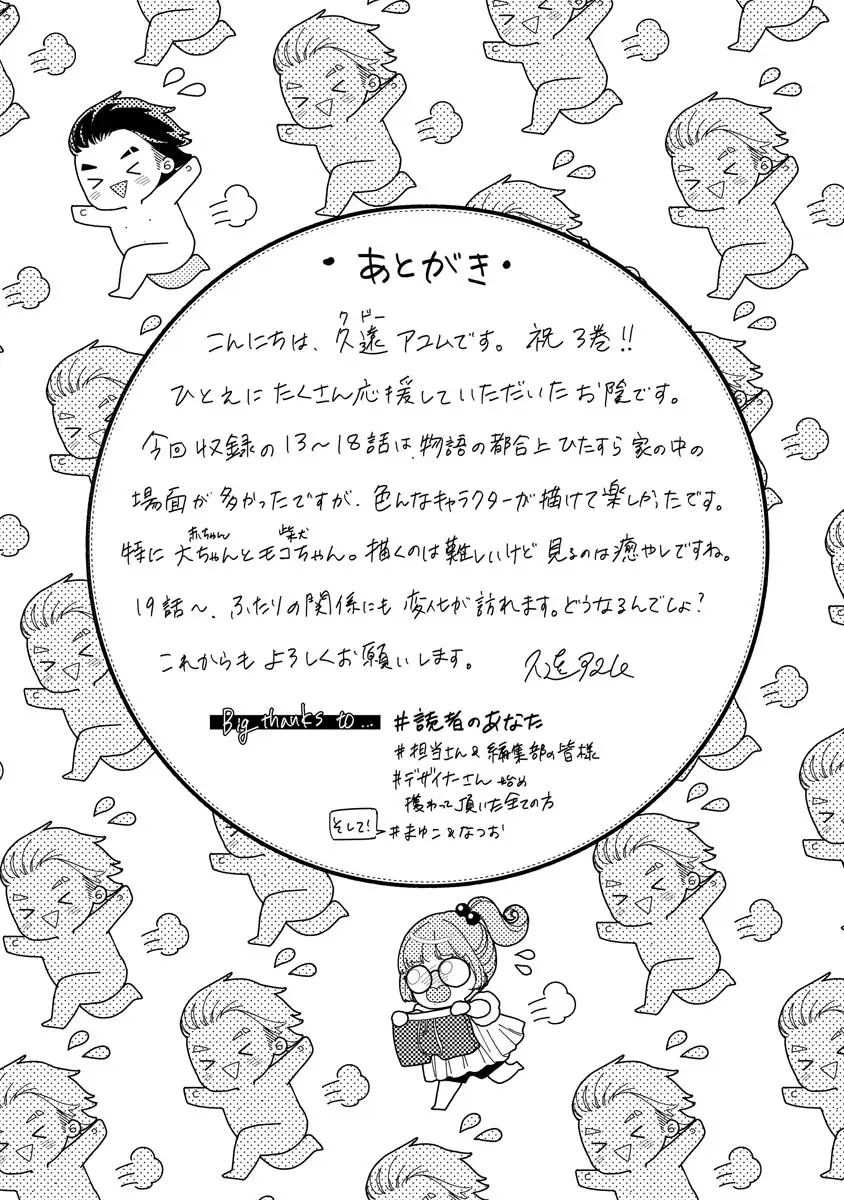 ・あとがき・
クドー
こんにちは、久遠アユムです。祝3巻!!
ひとえにたくさん応援していただいたお陰です。
今回収録の13〜18話は、物語の都合上ひたすら家の中の
場面が多かったですが、色んなキャラクターが描けて楽しかったです。
赤ちゃん 柴犬
特に大ちゃんとモコちゃん。描くのは難しいけど見るのは癒やしですね。
19話〜、ふたりの関係にも変化が訪れます。どうなるんでしょ?
これからもよろしくお願いします。 久遠アユム
Big thanks to... #読者のあなた
#担当さん&編集部の皆様
#デザイナーさん始め
携わって頂いた全ての方
そして! #まゆこ&なつお